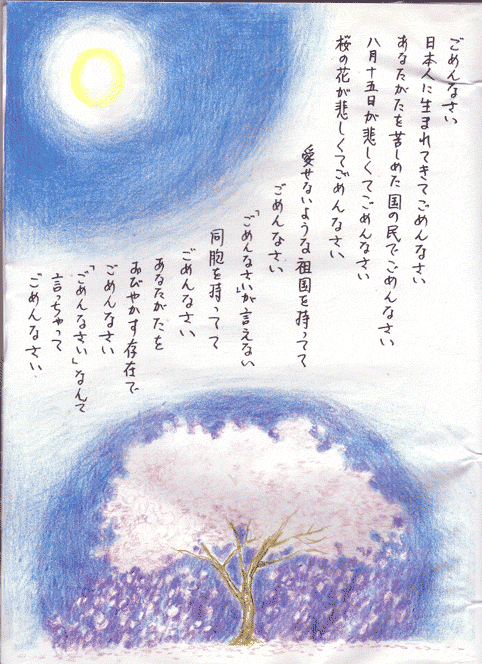 ごめんなさい
日本人に生まれてきてごめんなさい
あなたがたを苦しめた国の民でごめんなさい
八月十五日が悲しくてごめんなさい
桜の花が悲しくてごめんなさい
愛せないような祖国を持ってて
ごめんなさい
「ごめんなさい」が言えない
同胞を持ってて
ごめんなさい
あなたがたを
おびやかす存在で
ごめんなさい
「ごめんなさい」なんて
言っちゃって
ごめんなさい